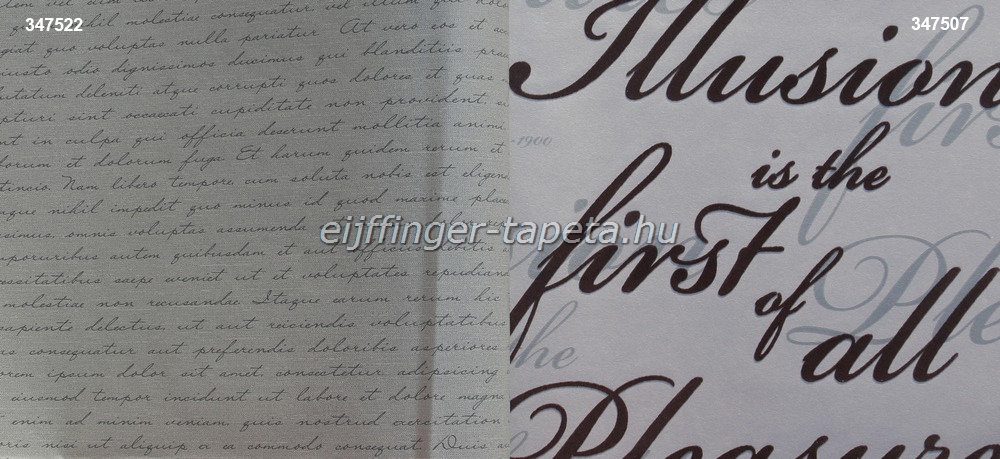 347522
347507
nihil molestiae consequatur, vel illum qui dolo
giat quo voluptas nulla pariatur. At vero eos et ac
iusto odio dignissimos ducimus qui blanditiis prae
tatum deleniti atque corrupti quos dolores et quas
pturi sint occaecati cupiditate non provident, si
nt in culpa qui officia deserunt mollitia animi,
borum et dolorum fuga. Et harum quidem rerum et
tincio. Nam libero tempore cum soluta nobis est eligen
mque nihil impedit quo minus id quod maxime place
simus, omnis voluptas assumenda dolor
mporuribus autem quibusdam et aut officiis debitis
essitatibus saepe eveniet ut et voluptates repudian
molestiae non recusandae. Itaque earum rerum hic
sapiente delectus, ut aut reiciendis voluptatibus
as consequatur aut preferendis doloribis asperiores
orem ipsum dolor sit amet, consectetur adipisicing
eiusmod tempor incidunt ut labore et dolore magna
enim ad minim veniam, quis nostrud exercitation
oris nisi ut aliquip ex ea commodo consequat. Duis a
Illusion
is the
first
of
all
Pleasure
-1900
firs
the
Ple
eijffinger-tapeta.hu